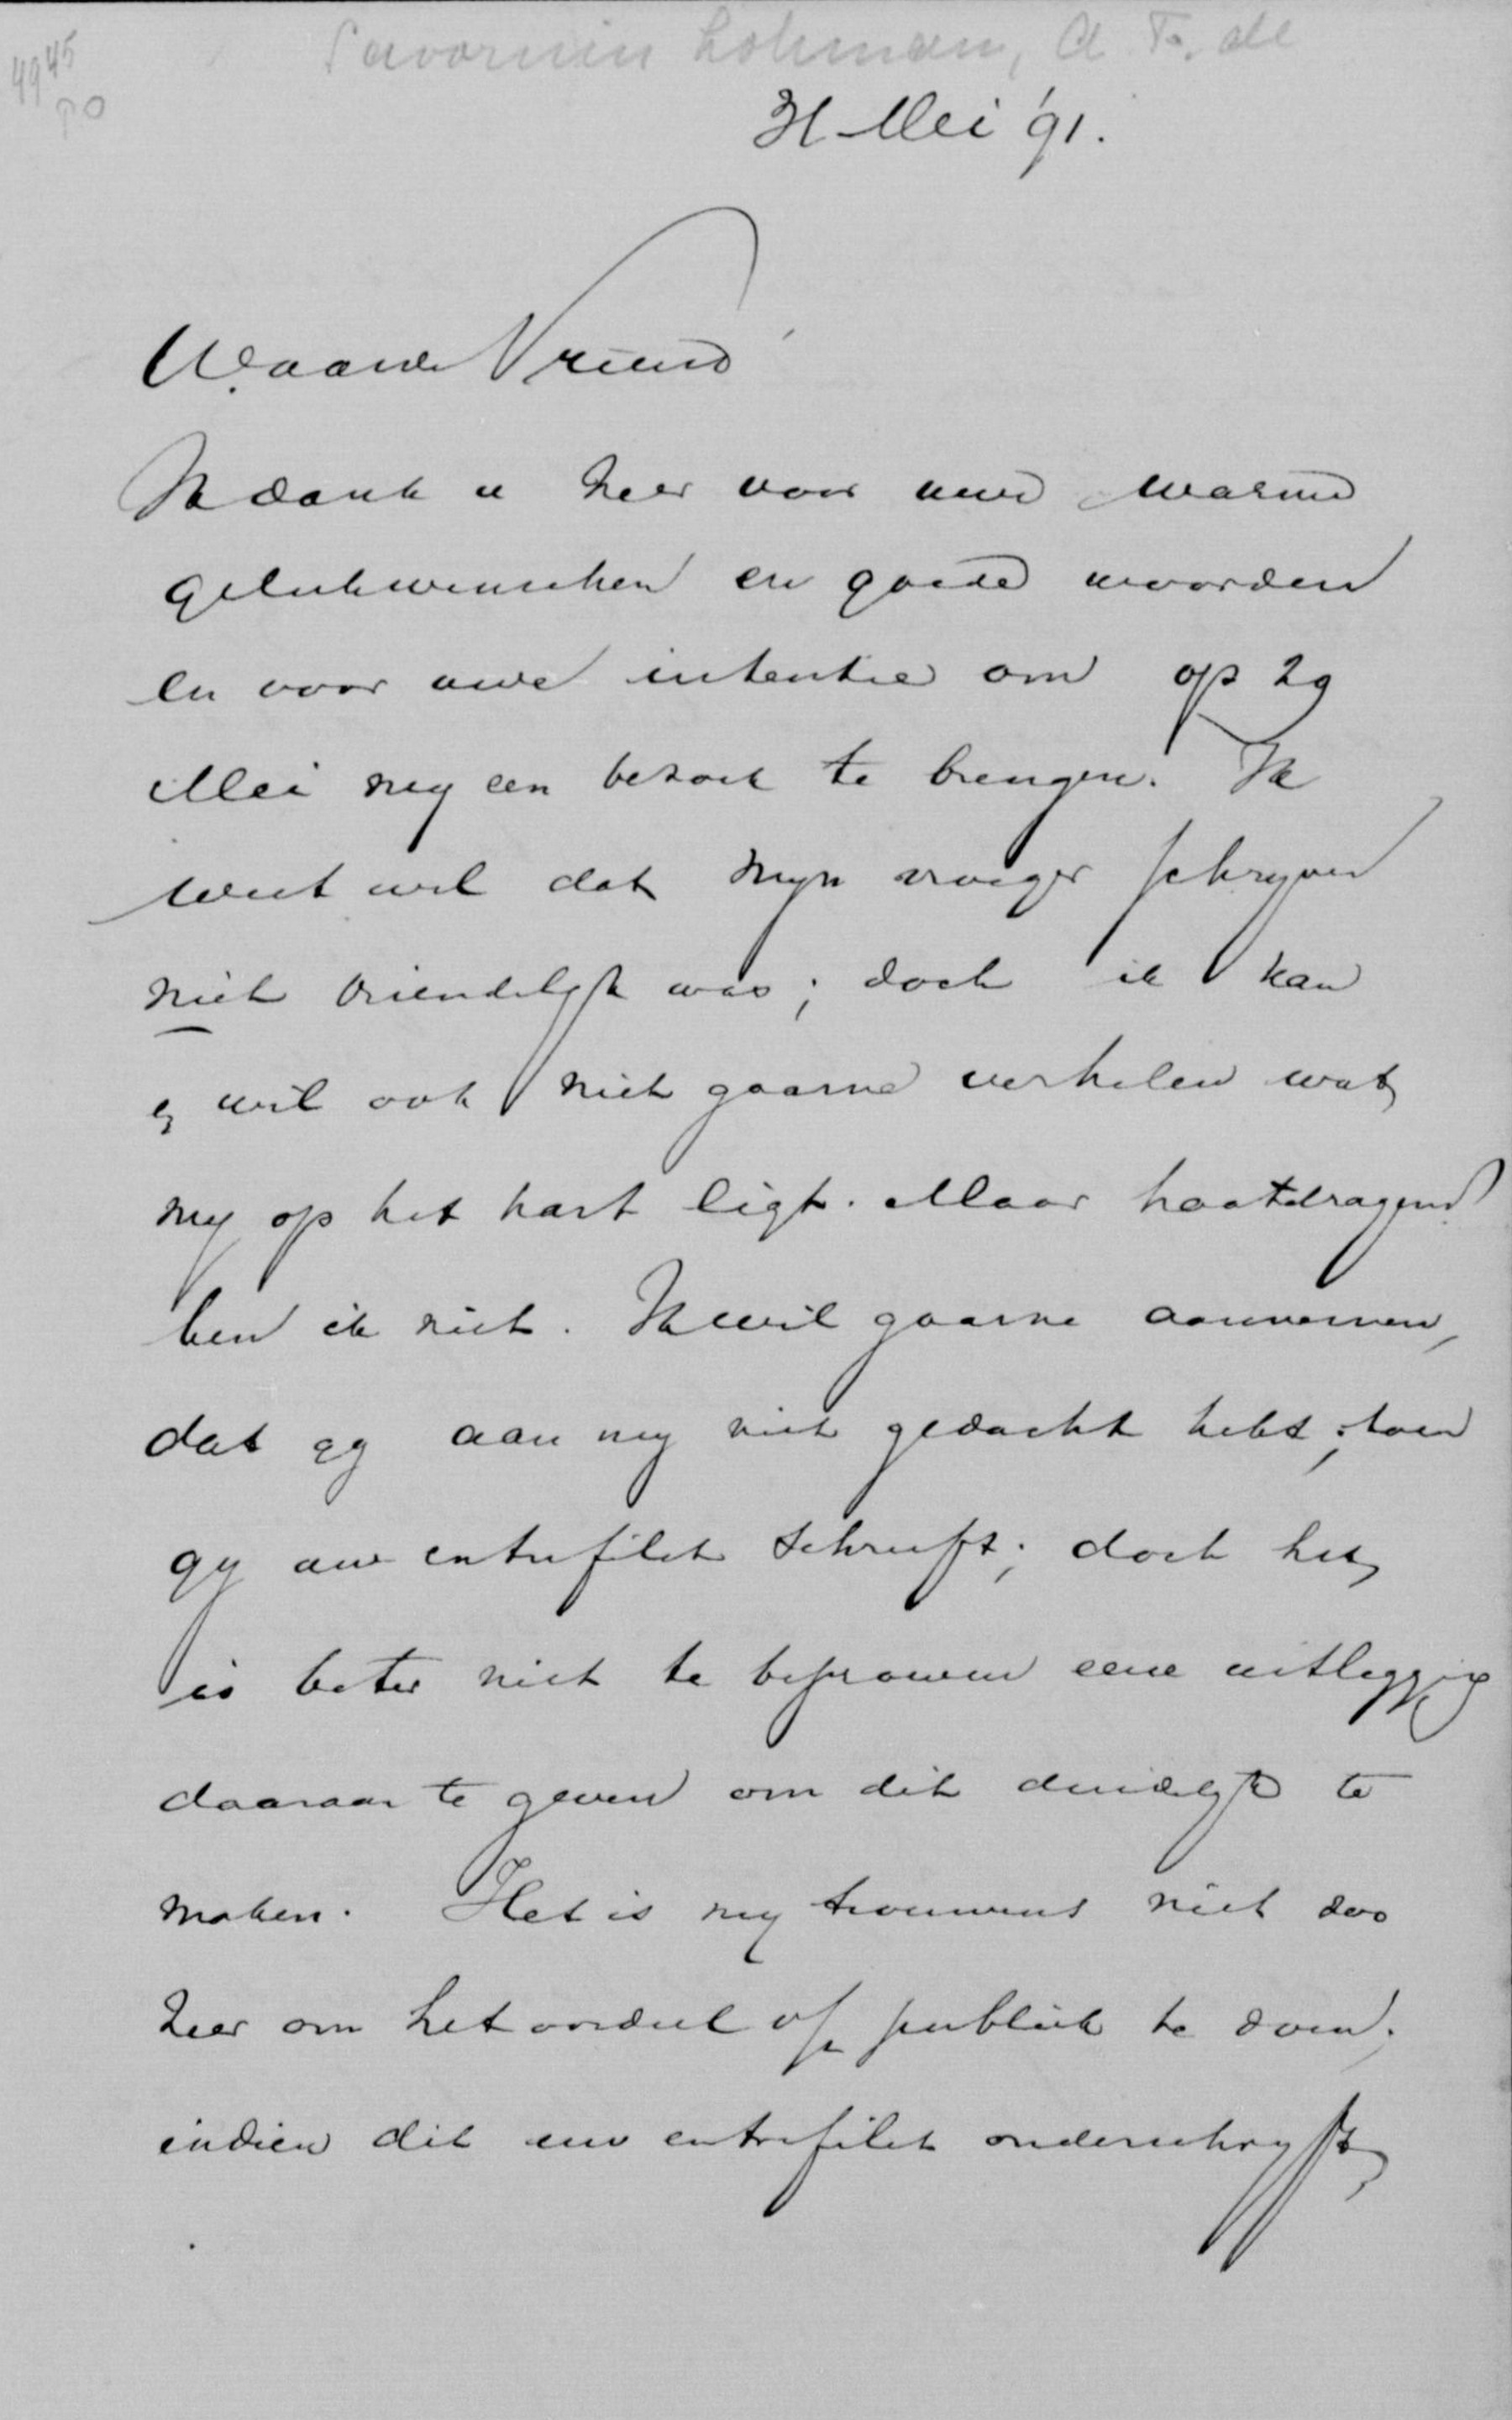 Savornin Lohman, A. F. de
4945
31 Mei '91.
Waarde Vriend
Ik dank u zeer voor uwe warme
gelukwenschen en goede woorden
en voor uwe intentie om op 29
Mei mij een bezoek te brengen. Ik
weet wel dat mijn vroeger schrijven
niet vriendelijk was; doch ik kan
en wil ook niet gaarne verhelen wat
mij op het hart ligt. Maar haatdragend
ben ik niet. Ik wil gaarne aannemen,
dat gij aan mij niet gedacht hebt, toen
gij uw entrefilet schreeft; doch het
is beter niet te beproeven eene uitlegging
daaraan te geven om dit duidelijk te
maken. Het is mij trouwens niet zoo
zeer om het oordeel v/h publiek te doen;
indien dit uw entrefilet onderschrijft,